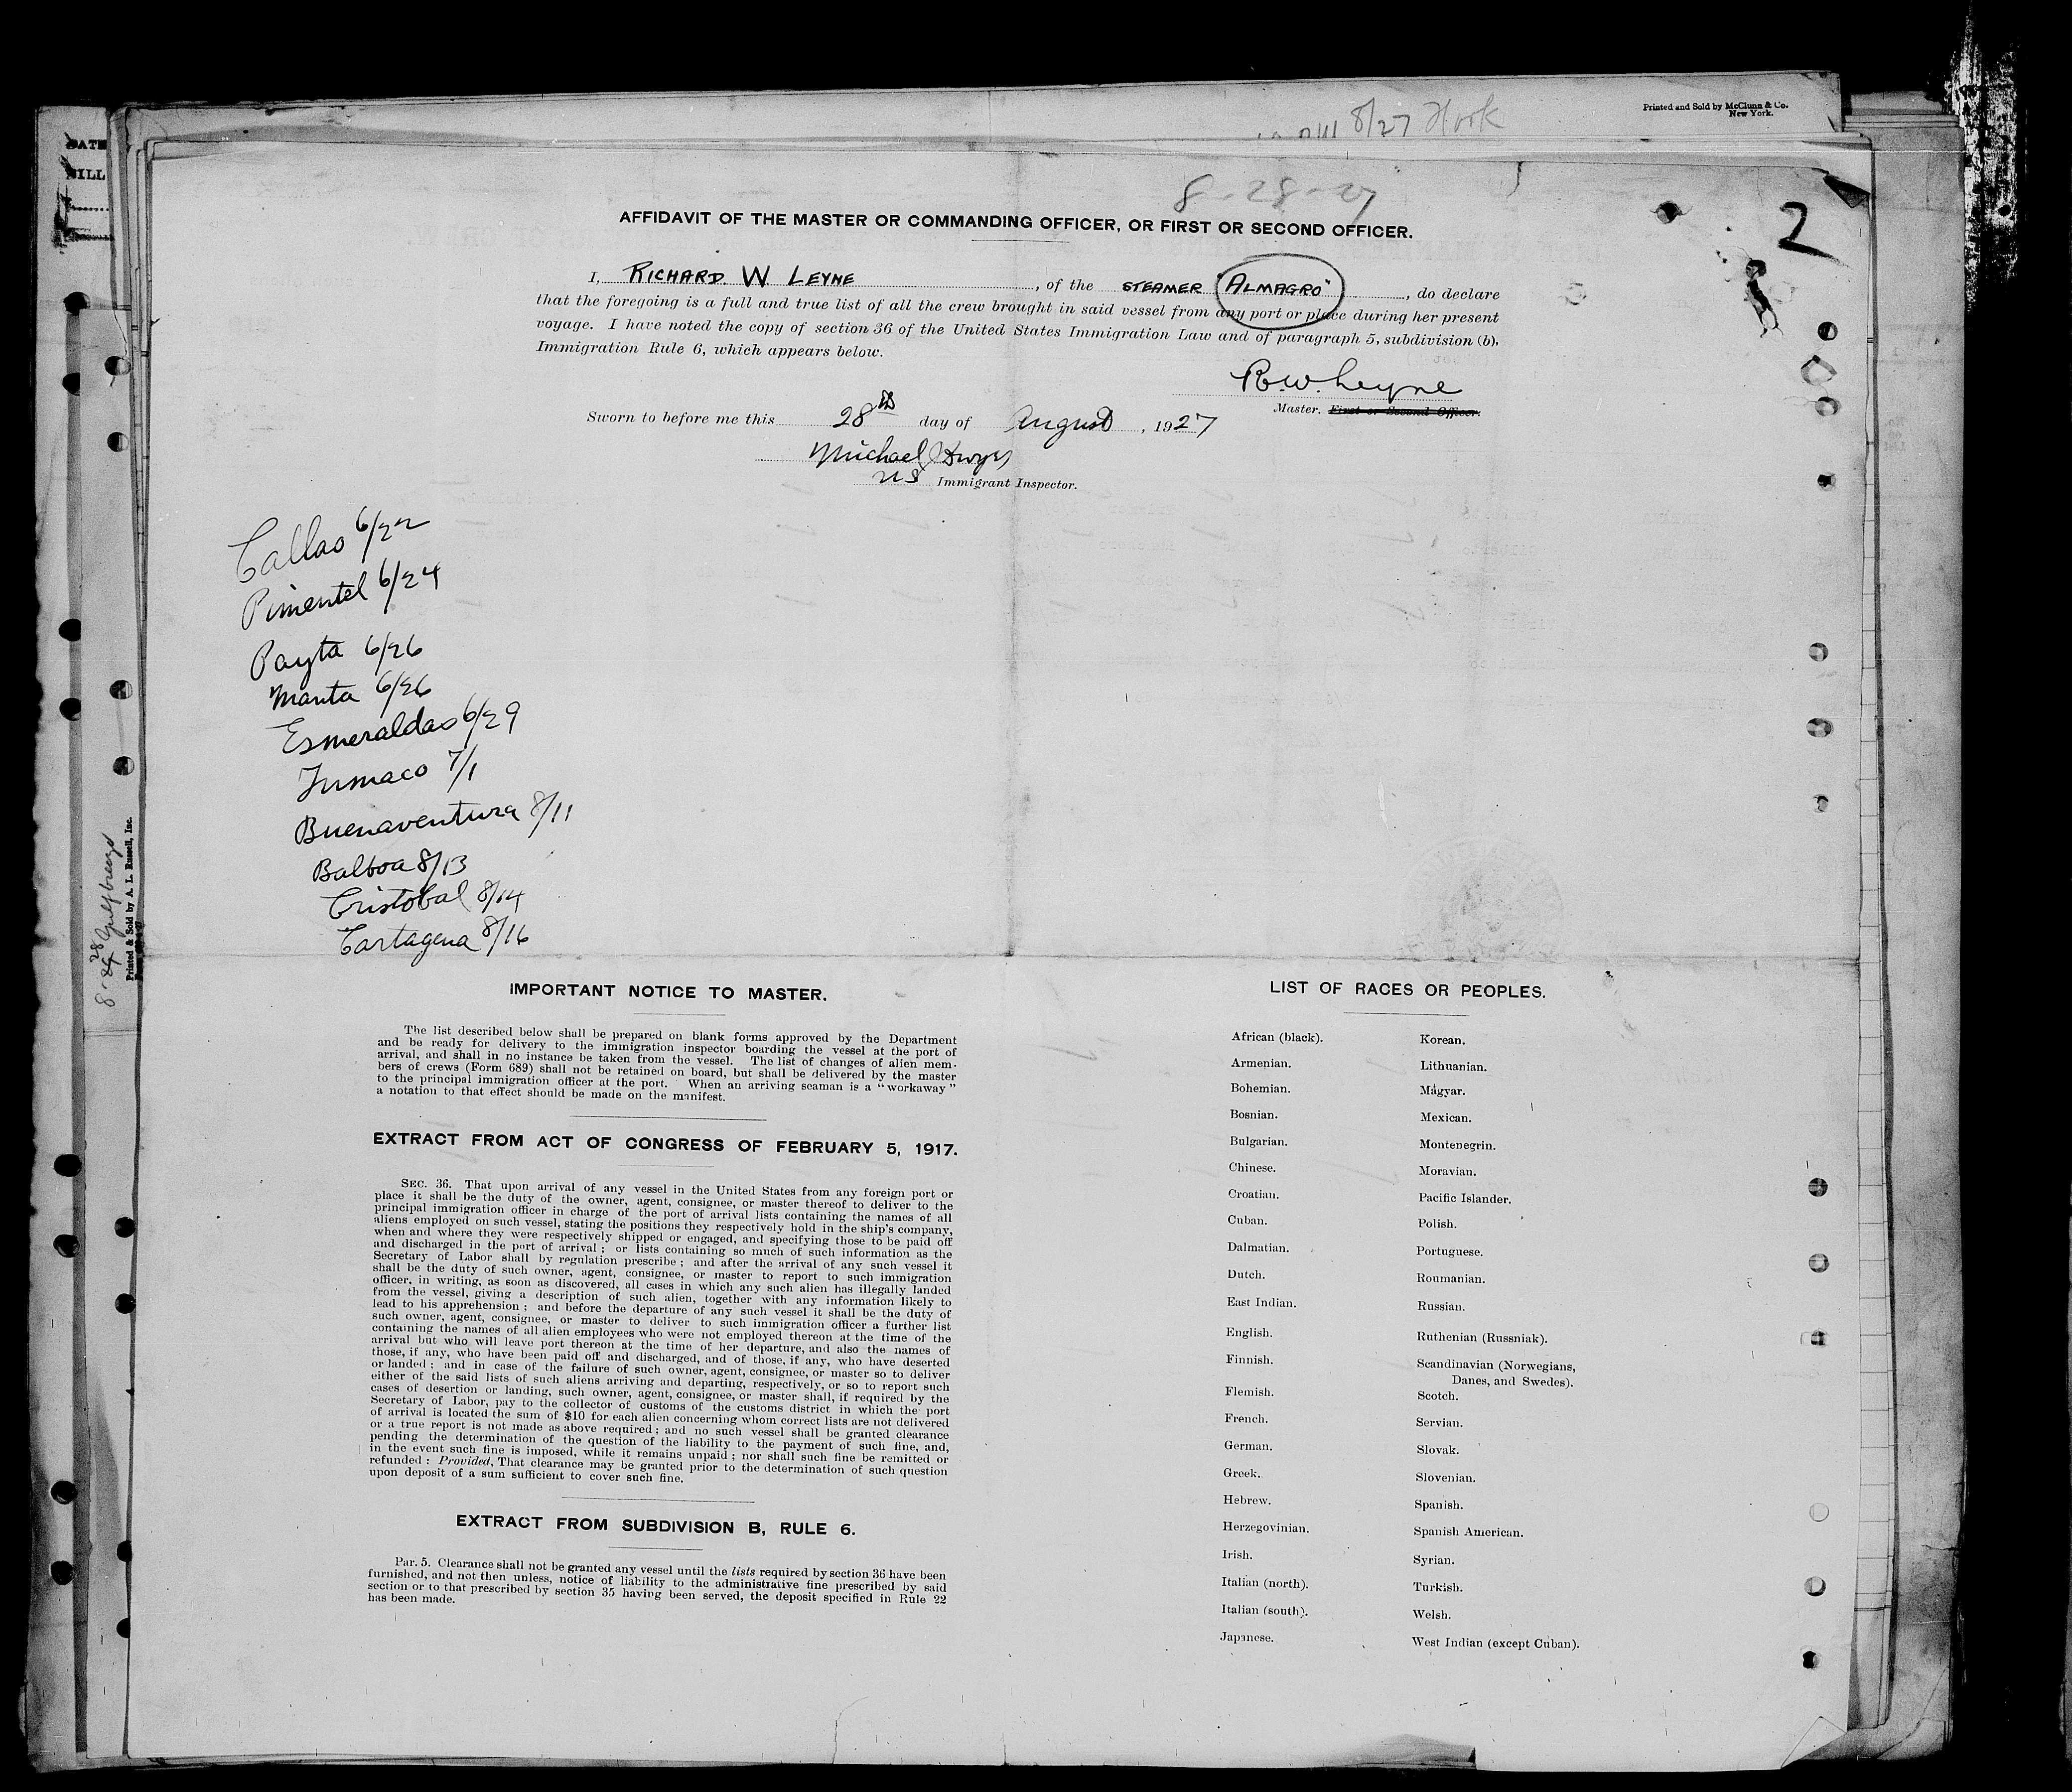 8/27 Hook
Printed and Sold by McClunn & Co.
New York.
8-28-27
2
AFFIDAVIT OF THE MASTER OR COMMANDING OFFICER, OR FIRST OR SECOND OFFICER.
I, RICHARD. W LEYNE, of the STEAMER "ALMAGRO", do declare
that the foregoing is a full and true list of all the crew brought in said vessel from any port or place during her present
voyage. I have noted the copy of section 36 of the United States Immigration Law and of paragraph 5, subdivision (b),
Immigration Rule 6, which appears below.
R.W. Leyne
Master. First or Second Officer.
Sworn to before me this 28th day of August, 1927
Michael Dwyer
US Immigrant Inspector.
Callao 6/22
Pimentel 6/24
Payta 6/26
Manta 6/26
Esmeraldas 6/29
Tumaco 7/1
Buenaventura 8/11
Balboa 8/13
Cristobal 8/14
Cartagena 8/16
Printed & Sold by A. L. Russell, Inc.
IMPORTANT NOTICE TO MASTER.
The list described below shall be prepared on blank forms approved by the Department
and be ready for delivery to the immigration inspector boarding the vessel at the port of
arrival, and shall in no instance be taken from the vessel. The list of changes of alien mem-
bers of crews (Form 689) shall not be retained on board, but shall be delivered by the master
to the principal immigration officer at the port. When an arriving seaman is a "workaway"
a notation to that effect should be made on the manifest.
EXTRACT FROM ACT OF CONGRESS OF FEBRUARY 5, 1917.
SEC. 36. That upon arrival of any vessel in the United States from any foreign port or
place it shall be the duty of the owner, agent, consignee, or master thereof to deliver to the
principal immigration officer in charge of the port of arrival lists containing the names of all
aliens employed on such vessel, stating the positions they respectively hold in the ship's company,
when and where they were respectively shipped or engaged, and specifying those to be paid off
and discharged in the port of arrival; or lists containing so much of such information as the
Secretary of Labor shall by regulation prescribe; and after the arrival of any such vessel it
shall be the duty of such owner, agent, consignee, or master to report to such immigration
officer, in writing, as soon as discovered, all cases in which any such alien has illegally landed
from the vessel, giving a description of such alien, together with any information likely to
lead to his apprehension; and before the departure of any such vessel it shall be the duty of
such owner, agent, consignee, or master to deliver to such immigration officer a further list
containing the names of all alien employees who were not employed thereon at the time of the
arrival but who will leave port thereon at the time of her departure, and also the names of
those, if any, who have been paid off and discharged, and of those, if any, who have deserted
or landed; and in case of the failure of such owner, agent, consignee, or master so to deliver
either of the said lists of such aliens arriving and departing, respectively, or so to report such
cases of desertion or landing, such owner, agent, consignee, or master shall, if required by the
Secretary of Labor, pay to the collector of customs of the customs district in which the port
of arrival is located the sum of $10 for each alien concerning whom correct lists are not delivered
or a true report is not made as above required; and no such vessel shall be granted clearance
pending the determination of the question of the liability to the payment of such fine, and,
in the event such fine is imposed, while it remains unpaid; nor shall such fine be remitted or
refunded: Provided, That clearance may be granted prior to the determination of such question
upon deposit of a sum sufficient to cover such fine.
EXTRACT FROM SUBDIVISION B, RULE 6.
Par. 5. Clearance shall not be granted any vessel until the lists required by section 36 have been
furnished, and not then unless, notice of liability to the administrative fine prescribed by said
section or to that prescribed by section 35 having been served, the deposit specified in Rule 22
has been made.
LIST OF RACES OR PEOPLES.
African (black).
Armenian.
Bohemian.
Bosnian.
Bulgarian.
Chinese.
Croatian.
Cuban.
Dalmatian.
Dutch.
East Indian.
English.
Finnish.
Flemish.
French.
German.
Greek.
Hebrew.
Herzegovinian.
Irish.
Italian (north).
Italian (south).
Japanese.
Korean.
Lithuanian.
Magyar.
Mexican.
Montenegrin.
Moravian.
Pacific Islander.
Polish.
Portuguese.
Roumanian.
Russian.
Ruthenian (Russniak).
Scandinavian (Norwegians,
Danes, and Swedes).
Scotch.
Servian.
Slovak.
Slovenian.
Spanish.
Spanish American.
Syrian.
Turkish.
Welsh.
West Indian (except Cuban).